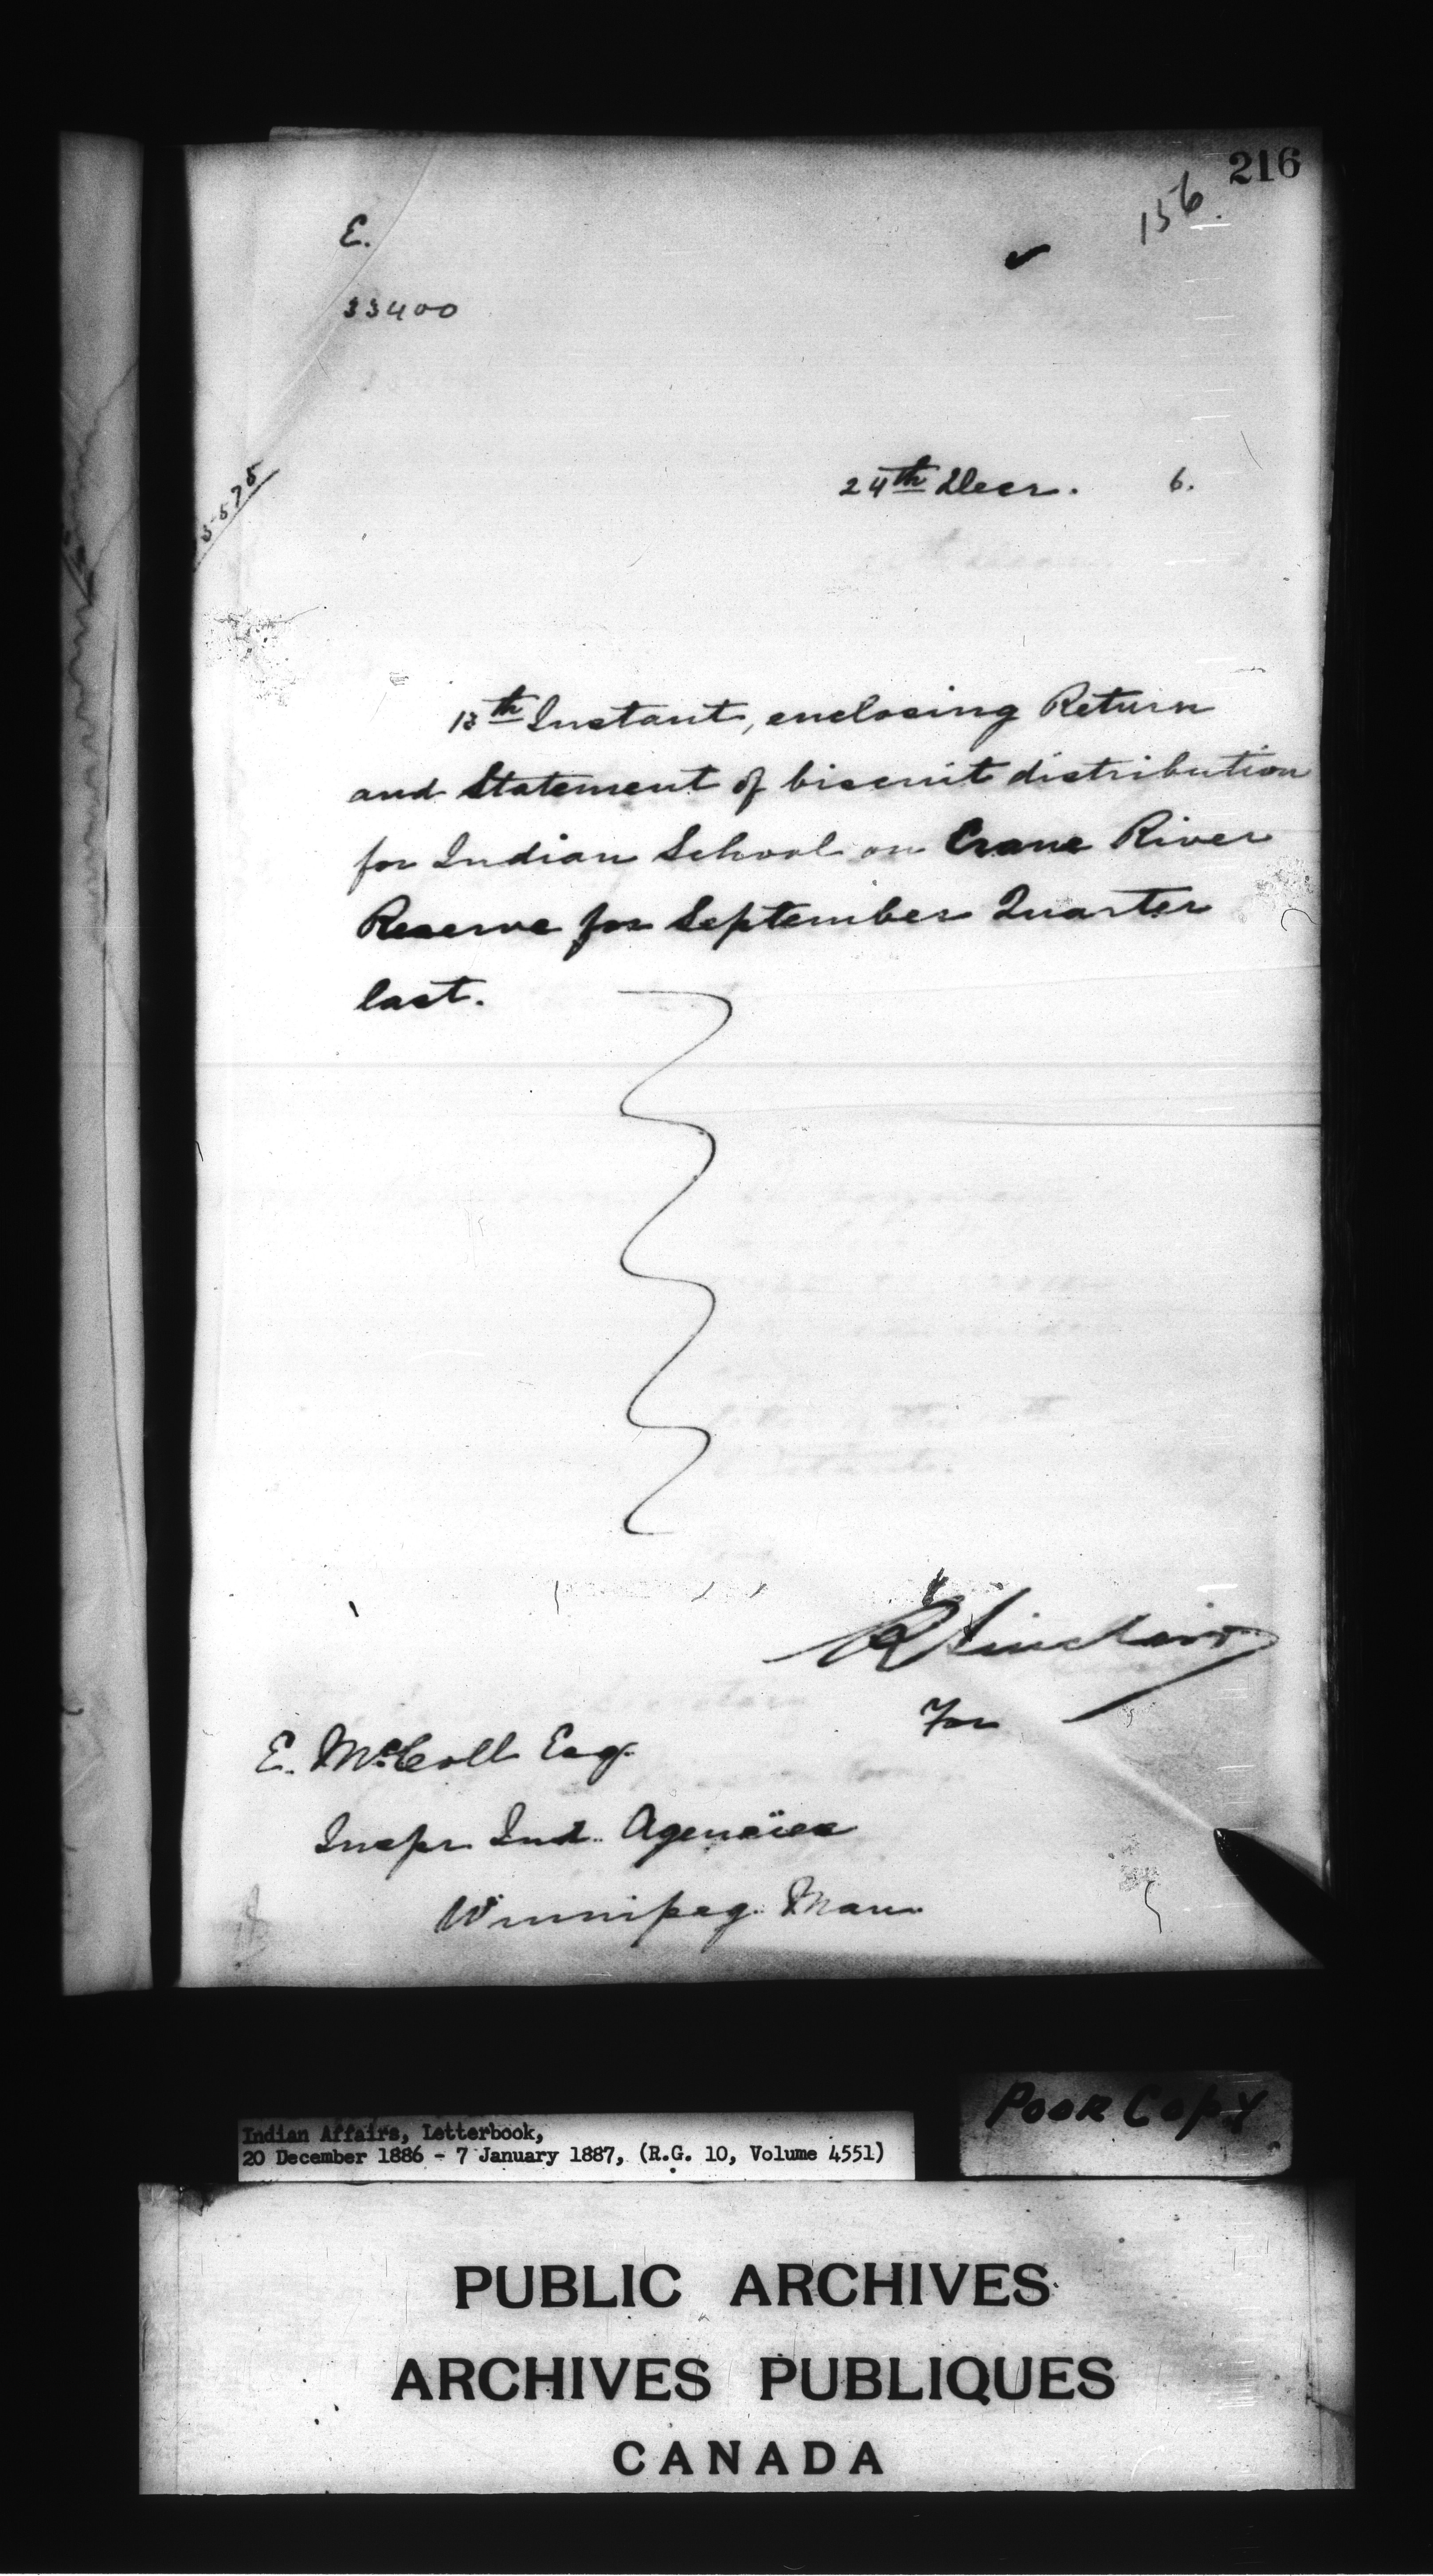 216
156.
E.
33400
24th Decr. 6.
13th Instant, enclosing Return
and Statement of biscuit distribution
for Indian School on Crane River
Reserve for September Quarter
last.
R Sinclair
For
E. McColl Esq.
Inspr Ind. Agencies
Winnipeg. Man.
POOR COPY
Indian Affairs, Letterbook,
20 December 1886 - 7 January 1887, (R.G. 10, Volume 4551)
PUBLIC ARCHIVES
ARCHIVES PUBLIQUES
CANADA